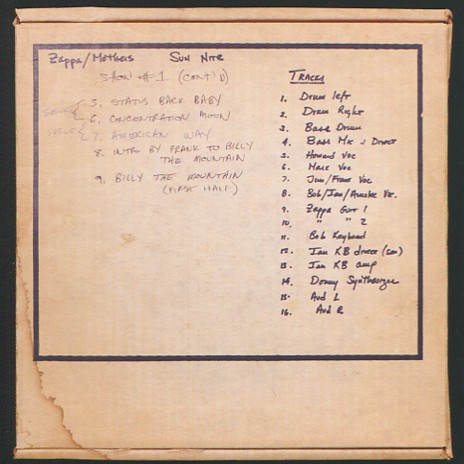 Zappa/Mothers Sun Nite
Show #1 (Cont'd)
5. Status Back Baby
6. Concentration Moon
7. American Way
8. Intro by Frank to Billy
the Mountain
9. Billy the Mountain
(First Half)
Tracks
1. Drum left
2. Drum Right
3. Bass Drum
4. Bass Mic & Direct
5. Howard Voc
6. Mark Voc
7. Jim/Frank Voc
8. Bob/Ian/Aynsley Voc.
9. Zappa Guit 1
10. " " 2
11. Bob Keyboard
12. Ian KB direct
13. Ian KB amp
14. Donny Synthesizer
15. Aud L
16. Aud R